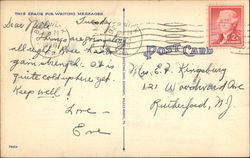 THIS SPACE FOR WRITING MESSAGES
Tuesday
Dear Nelle,
Things are going along
all right. Rose has to
gain strength. It is
quite cold up here yet.
Keep well!
Love -
Eve
POST CARD
Mrs. E. F. Kingsbury
121 Woodward Ave
Rutherford, N.J.